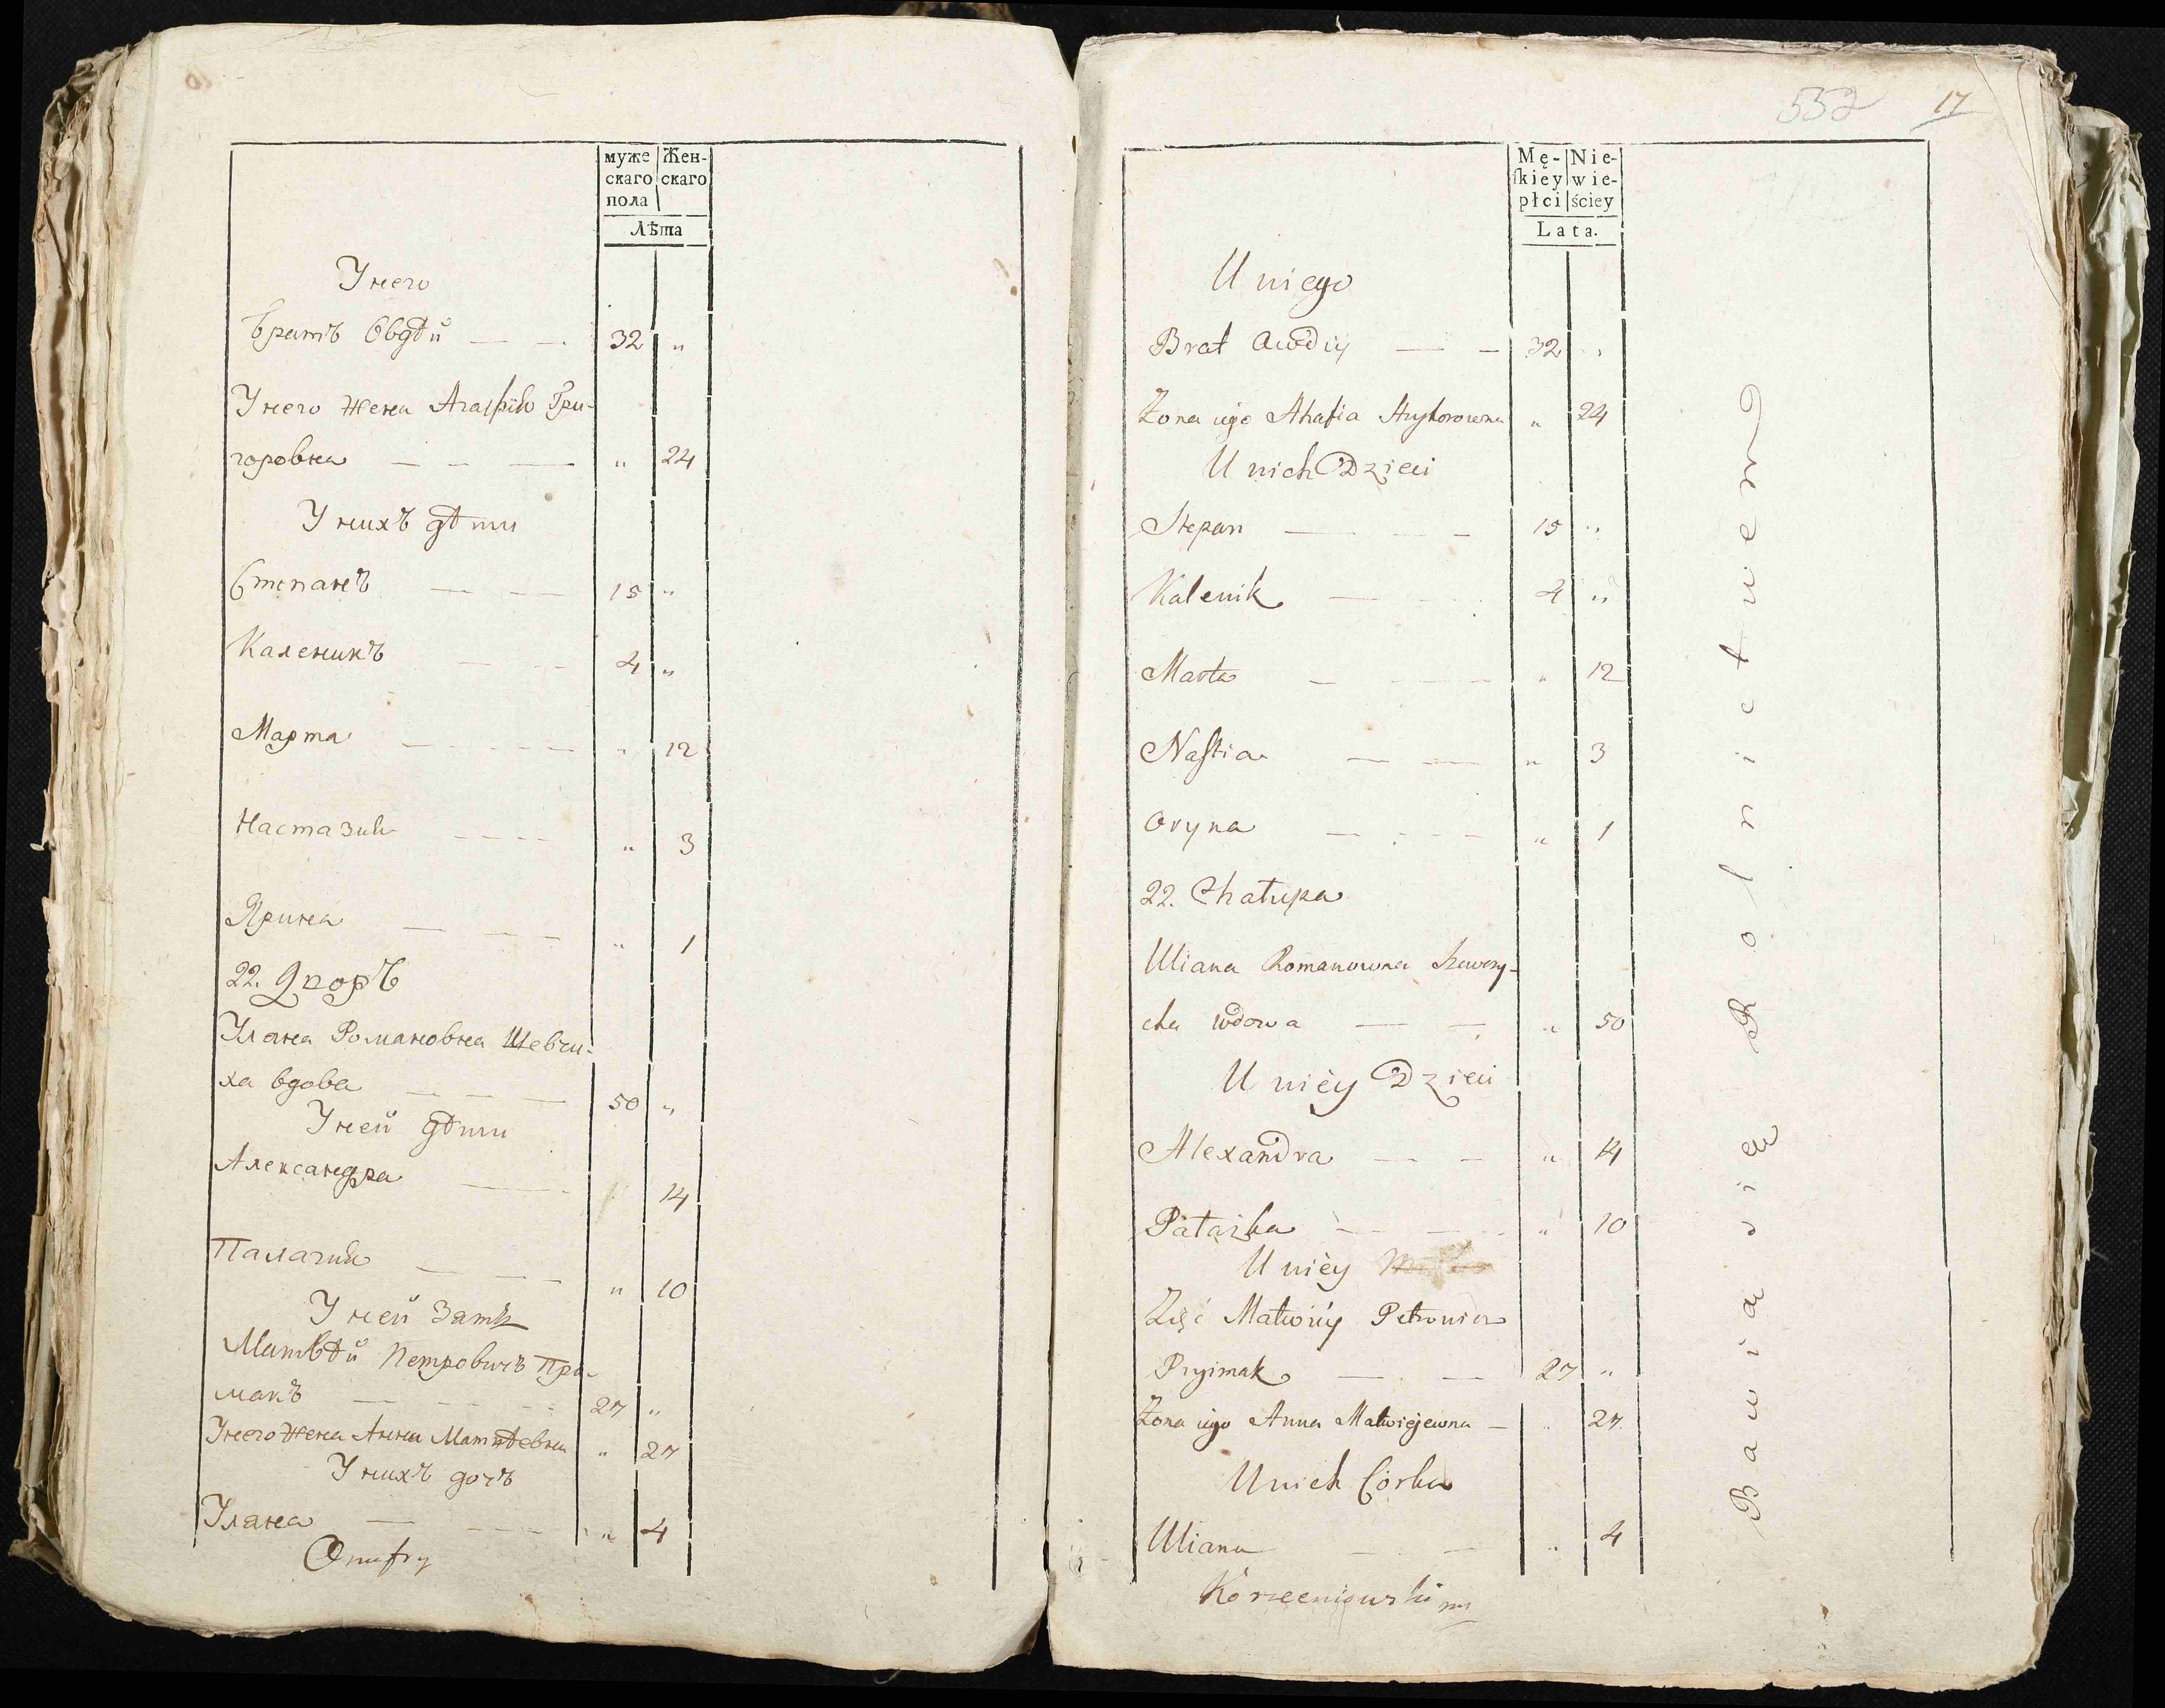 муже Жен-
скаго скаго
пола
Лѣта
У него
Братъ Овдѣй — — 32 "
У него жена Агафія Гри-
горовна — — — " 24
У нихъ дѣти
Степанъ — — — 15 "
Каленикъ — — 4 "
Марта — — — — " 12
Настазия — — — — " 3
Ярина — — — " 1
22. Дворъ
Уляна Романовна Шевчи-
ха вдова — — — 50 "
У ней дѣти
Александра — 14
Палагия — — — " 10
У ней зять
Матвѣй Петровичъ При-
макъ — — — — 27 "
У него жена Анна Матвѣевна " 27
У нихъ дочъ
Уляна — — — — " 4
Onufry
552 17
Mę- Nie-
ſkiey wie-
płci ściey
Lata.
U niego
Brat Awdiy — — 32 "
Żona iego Ahafia Hryhorowna " 24
U nich Dzieci
Stepan — — — 15 "
Kalenik — — 4 "
Marta — — — — " 12
Naſtia — — — " 3
Oryna — — — — " 1
22. Chałupa
Uliana Romanowna Szewczy-
cha wdowa — — " 50
U niéy Dzieci
Alexandra — — " 14
Pałażka — — — " 10
U niéy
Zięć Matwiéy Petrowicz
Pryimak — . — 27 "
Żona iego Anna Matwiejewna — " 27.
U nich Córka
Uliana — . — " 4
Korzeniowski mp
Bawia się Rolnictwem